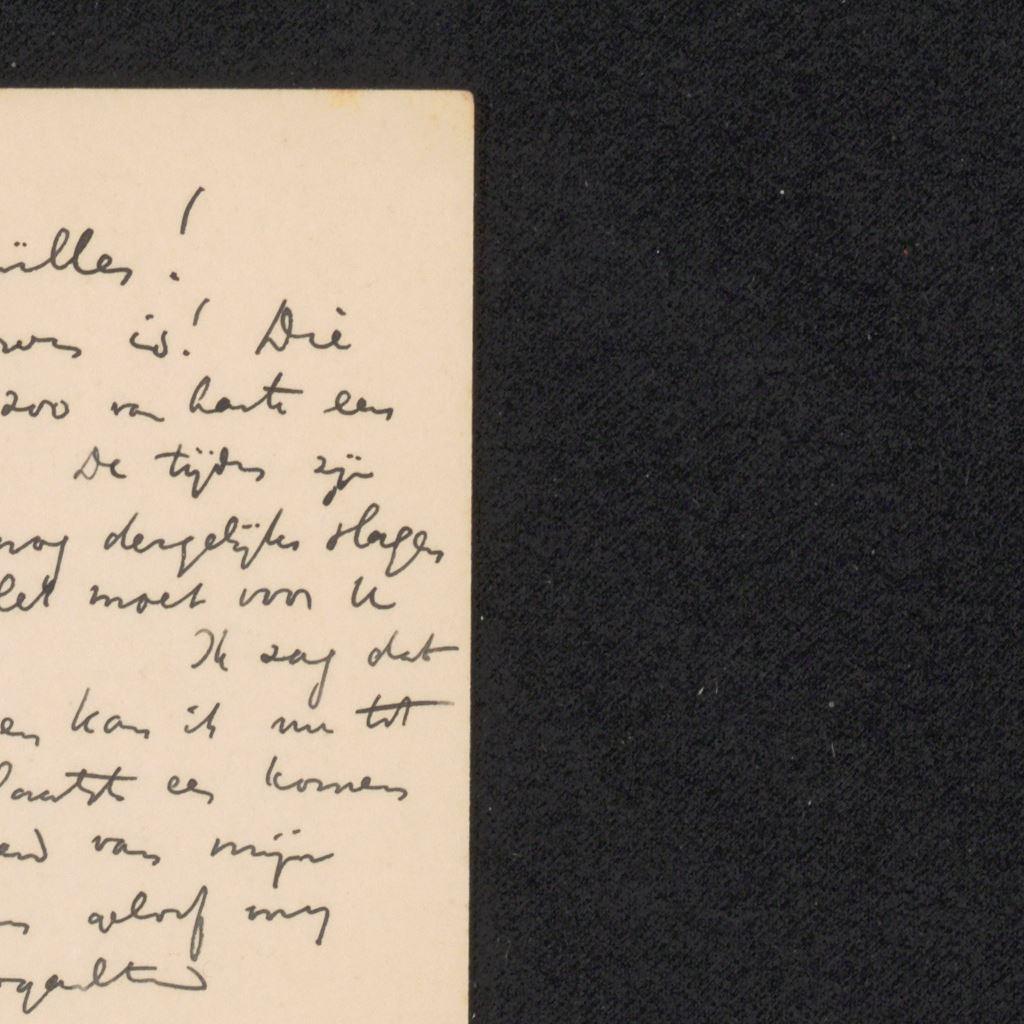 üller!
is! Die
zoo van harte een
De tijden zijn
nog dergelijke slagen
Het moet voor U
Ik zag dat
en kan ik nu tot
laatst een komen
van mijn
geloof mij